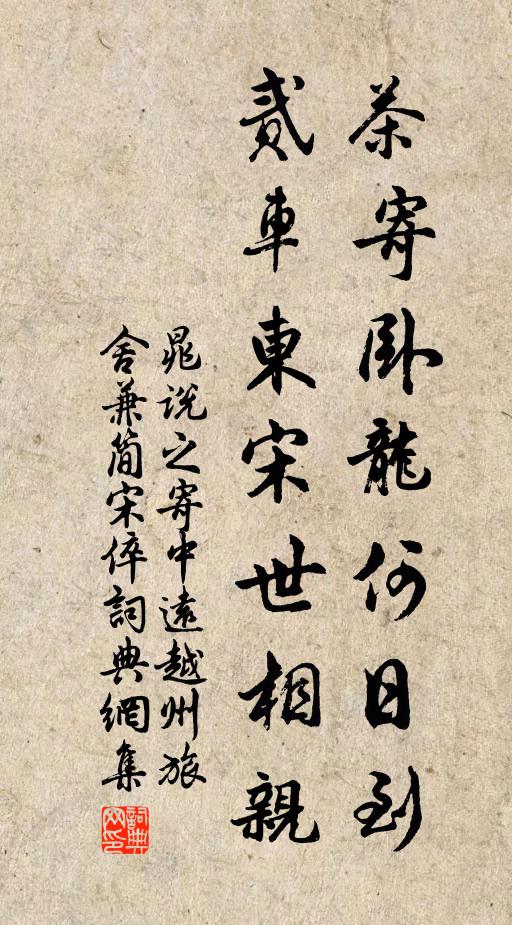 茶寄卧龍何日到
貳車東宋世相親
晁說之寄中遠越州旅
舍兼簡宋倅詞典網集
詞典
网印